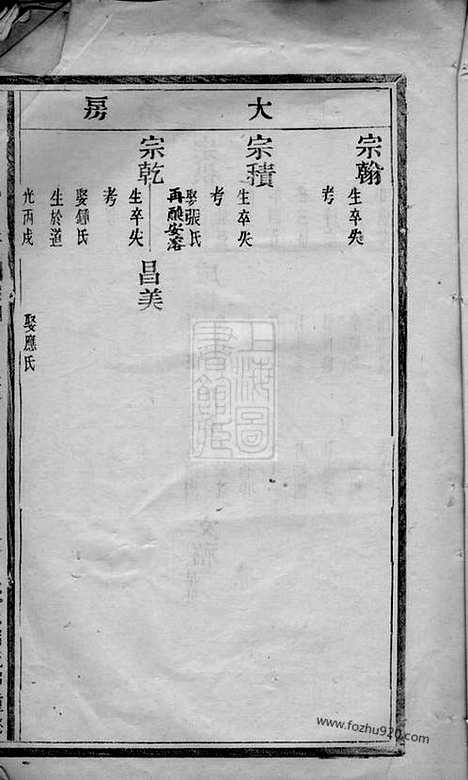 大房
宗翰
生卒失
考
宗積
生卒失
考
娶張氏
再醮安溶
宗乾 昌美
生卒失
考
娶鍾氏
生於道
光丙戌
娶應氏
上海圖書館藏
www.fozhu920.com